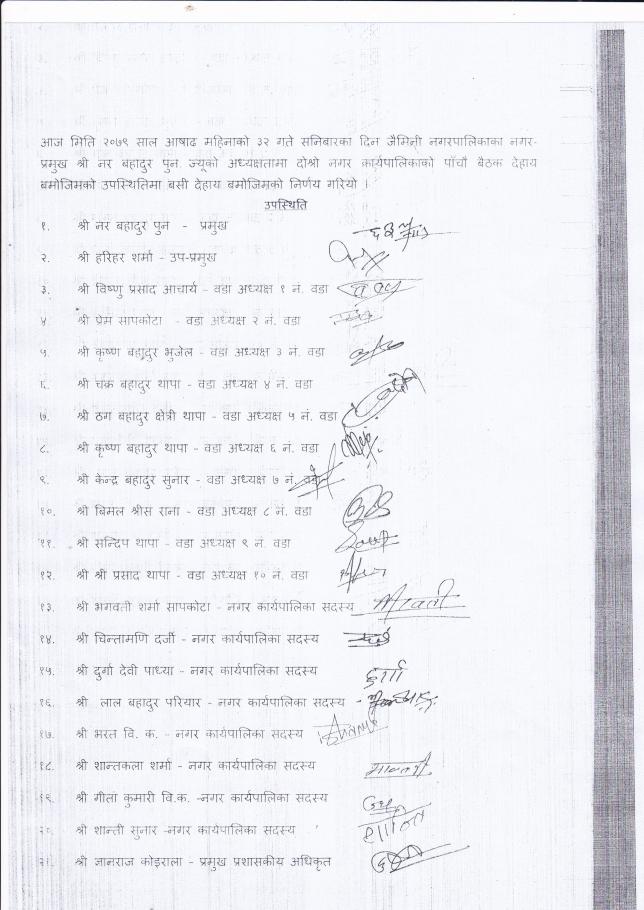 आज मिति २०७९ साल आषाढ महिनाको ३२ गते सनिबारका दिन जैमिनी नगरपालिकाका नगर-
प्रमुख श्री नर बहादुर पुन ज्यूको अध्यक्षतामा दोश्रो नगर कार्यपालिकाको पाँचौ बैठक देहाय
बमोजिमको उपस्थितिमा बसी देहाय बमोजिमको निर्णय गरियो ।
उपस्थिति
१. श्री नर बहादुर पुन - प्रमुख
२. श्री हरिहर शर्मा - उप-प्रमुख
३. श्री विष्णु प्रसाद आचार्य - वडा अध्यक्ष १ नं. वडा
४ श्री प्रेम सापकोटा - वडा अध्यक्ष २ नं. वडा
५. श्री कृष्ण बहादुर भुजेल - वडा अध्यक्ष ३ नं. वडा
६. श्री चक्र बहादुर थापा - वडा अध्यक्ष ४ नं. वडा
७. श्री ठग बहादुर क्षेत्री थापा - वडा अध्यक्ष ५ नं. वडा
८. श्री कृष्ण बहादुर थापा - वडा अध्यक्ष ६ नं. वडा
९. श्री केन्द्र बहादुर सुनार - वडा अध्यक्ष ७ नं. वडा
१०. श्री बिमल श्रीस राना - वडा अध्यक्ष ८ नं. वडा
११. श्री सन्दिप थापा - वडा अध्यक्ष ९ नं. वडा
१२. श्री श्री प्रसाद थापा - वडा अध्यक्ष १० नं. वडा
१३. श्री भगवती शर्मा सापकोटा - नगर कार्यपालिका सदस्य
१४. श्री चिन्तामणि दर्जी - नगर कार्यपालिका सदस्य
१५. श्री दुर्गा देवी पाध्या - नगर कार्यपालिका सदस्य दुर्गा
१६. श्री लाल बहादुर परियार - नगर कार्यपालिका सदस्य -
१७. श्री भरत वि. क. - नगर कार्यपालिका सदस्य
१८. श्री शान्तकला शर्मा - नगर कार्यपालिका सदस्य
१९. श्री गीता कुमारी वि.क. -नगर कार्यपालिका सदस्य
२०. श्री शान्ती सुनार -नगर कार्यपालिका सदस्य शान्ति
२१. श्री ज्ञानराज कोइराला - प्रमुख प्रशासकीय अधिकृत